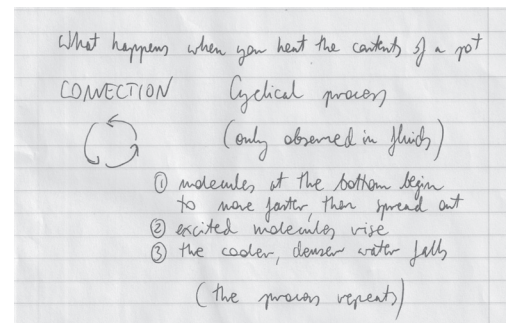 What happens when you heat the contents of a pot
CONVECTION Cyclical process
(only observed in fluids)
① molecules at the bottom begin
to move faster, then spread out
② excited molecules rise
③ the cooler, denser water falls
(the process repeats)